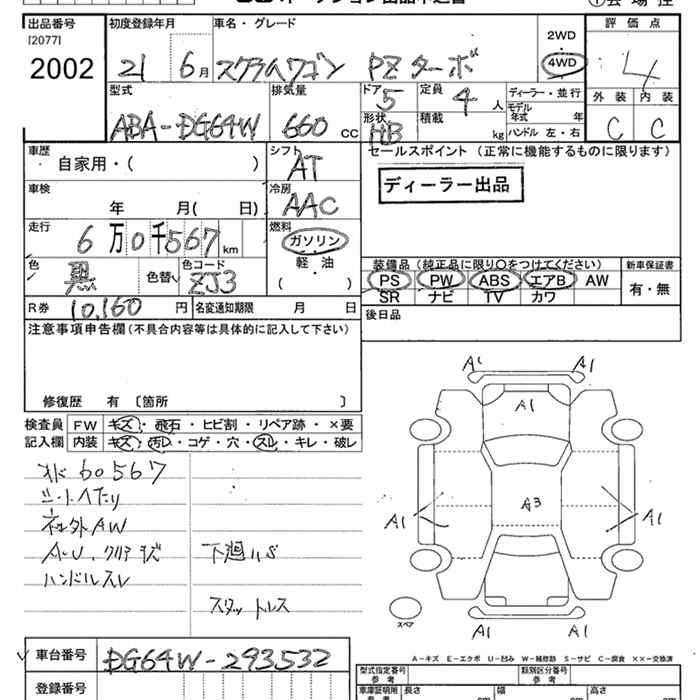 出品番号 初度登録年月 車名・グレード 2WD 評価点
[2077]
2002 21 6月 スクラムワゴン PZターボ 4WD 4
型式 排気量 ドア 5 定員 4 人 ディーラー・並行 外装 内装
モデル年式 年
ABA-DG64W 660 cc 形状 HB 積載 kg ハンドル 左・右 C C
車歴 シフト セールスポイント (正常に機能するものに限ります)
自家用・( ) AT
ディーラー出品
車検 冷房
年 月( 日) AAC
走行 燃料
6万0千567km ガソリン
色 色コード 軽・油 装備品 (純正品に限り○をつけてください) 新車保証書
黒 色替 ZJ3 ( ) PS PW ABS エアB AW 有・無
SR ナビ TV カワ
R券 10,160 円 名変通知期限 月 日 後日品
注意事項申告欄(不具合内容等は具体的に記入して下さい)
修復歴 有 〔箇所 〕
検査員 FW キズ・飛石・ヒビ割・リペア跡・×要
記入欄 内装 キズ・汚レ・コゲ・穴・スレ・キレ・破レ
オド60567
シートヘたり
社外AW
A-U.クリアキズ 下廻りS
ハンドルスレ
スタットレス
A1 A1
A1
A3
A1 A1
スペア
A1 A1
A-キズ E-エクボ U-凹み W-補修跡 S-サビ C-腐食 XX-交換済
車台番号 DG64W-293532
登録番号
型式指定番号 参考 類別区分番号 参考
車庫証明用 参考 長さ cm 幅 cm 高さ cm